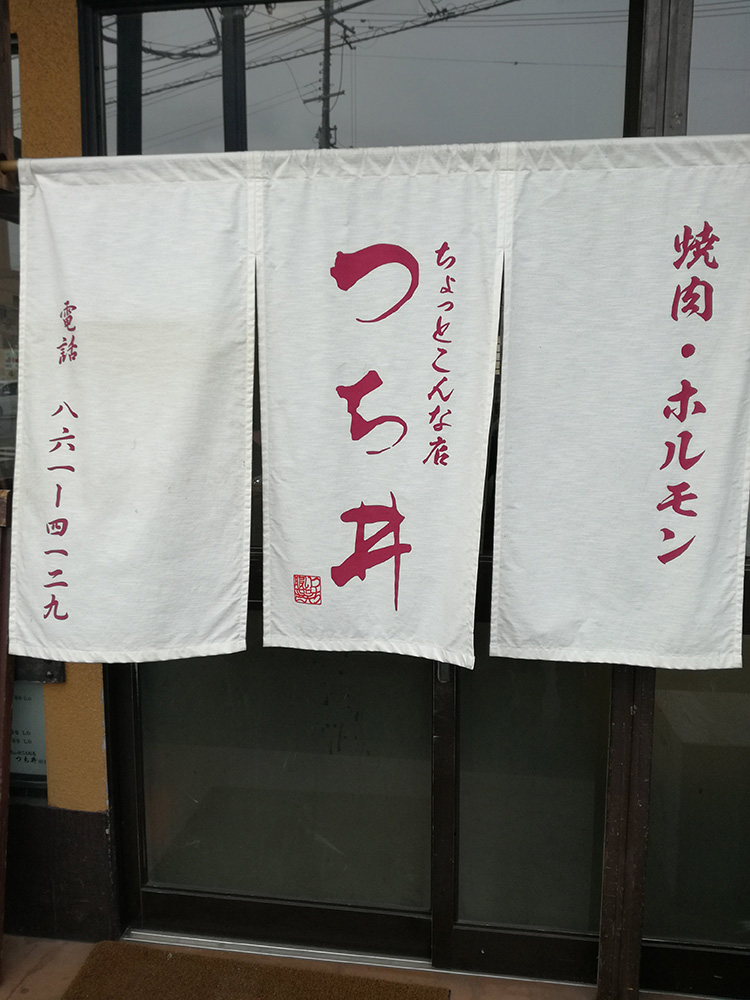 焼肉・ホルモン
ちょっとこんな店
つち井
電話 八六一ー四一二九
つち井